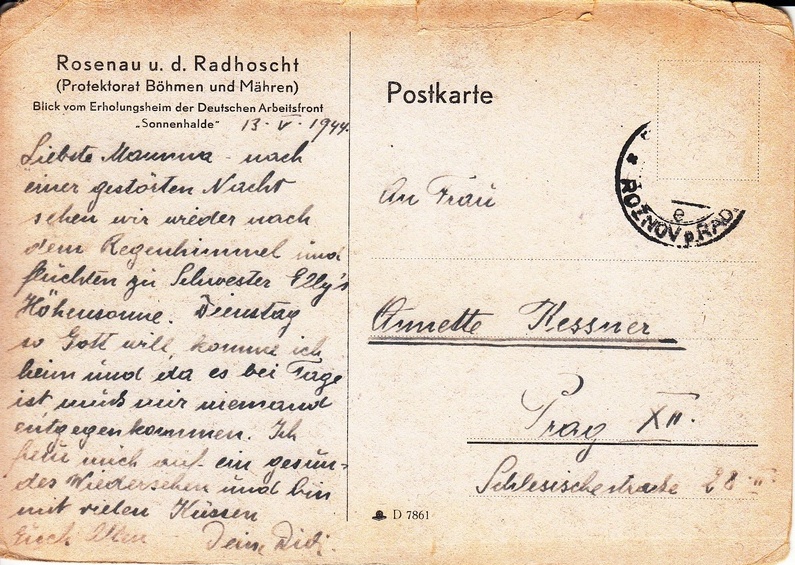 Rosenau u. d. Radhoscht
(Protektorat Böhmen und Mähren)
Blick vom Erholungsheim der Deutschen Arbeitsfront
„Sonnenhalde"
13·V·1944.
Liebste Mamma - nach
einer gestörten Nacht
sehen wir wieder nach
dem Regenhimmel und
flüchten zu Schwester Elly's
Höhensonne. Dienstag
so Gott will, komme ich
heim und da es bei Tage
ist muß mir niemand
entgegenkommen. Ich
freu mich auf ein gesun-
des Wiedersehen und bin
mit vielen Küssen
Euch Allen Deine Didi.
Postkarte
ROŽNOV p. RAD.
e
An Frau
Annette Kessner
Prag XII.
Schlesischestraße 28 II
D 7861